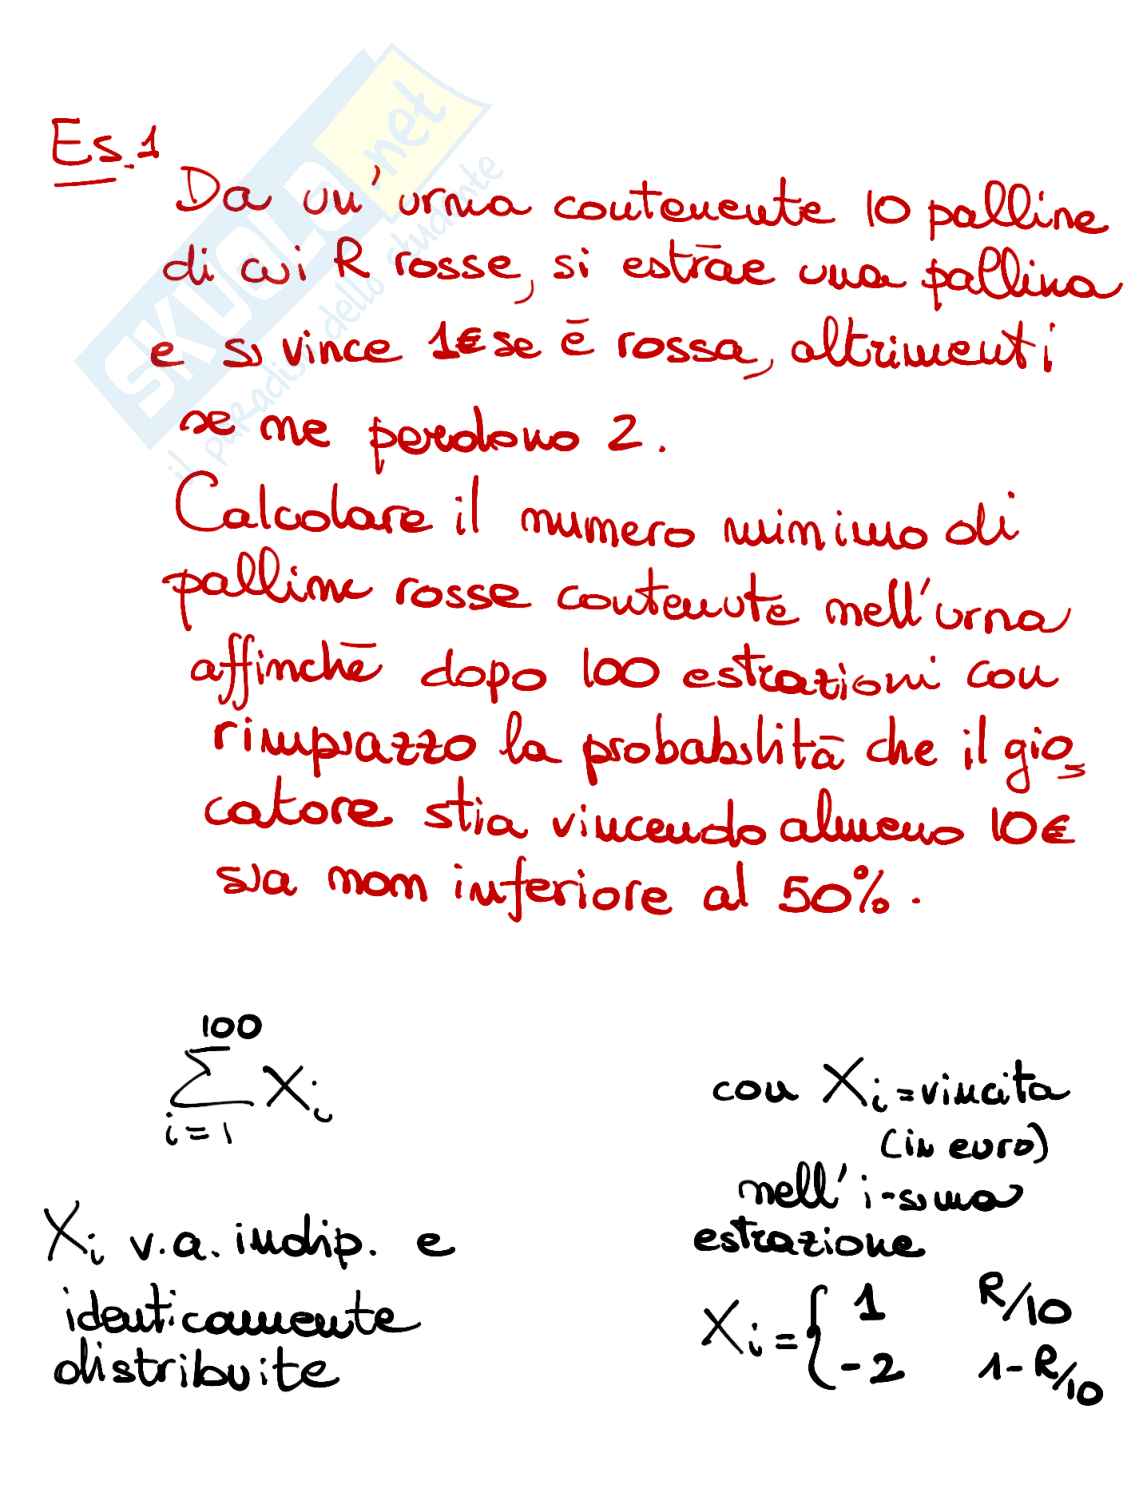 SKUOLA.net
il paradiso dello studente
Es.1
Da un'urna contenente 10 palline
di cui R rosse, si estrae una pallina
e si vince 1€ se è rossa, altrimenti
se ne perdono 2.
Calcolare il numero minimo di
palline rosse contenute nell'urna
affinchè dopo 100 estrazioni con
rimpiazzo la probabilità che il gio
catore stia vincendo almeno 10€
sia non inferiore al 50%.
100
∑ Xi
i=1
con Xi = vincita
(in euro)
nell' i-sima
estrazione
Xi v.a. indip. e
identicamente
distribuite
Xi = { 1 R/10
-2 1-R/10